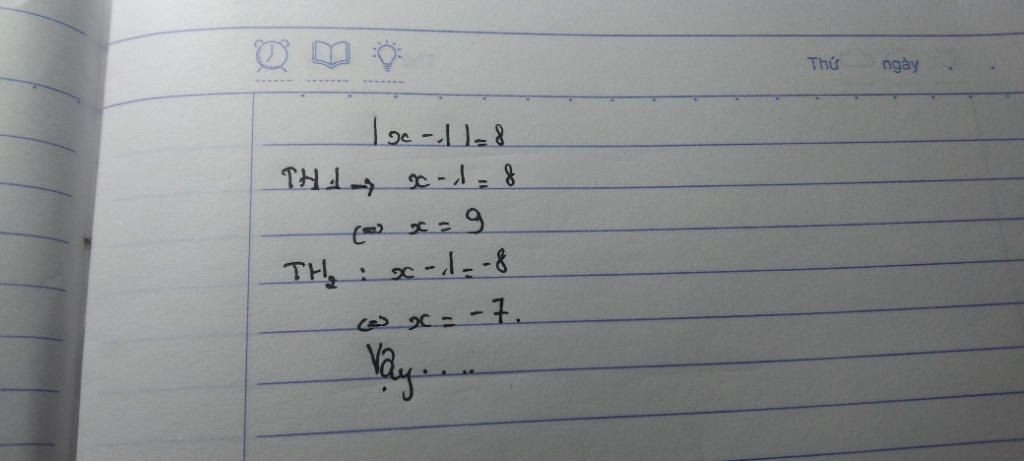 Thứ ngày . .
|x - 1| = 8
TH1 → x - 1 = 8
(=) x = 9
TH2 : x - 1 = -8
(=) x = -7.
Vậy....